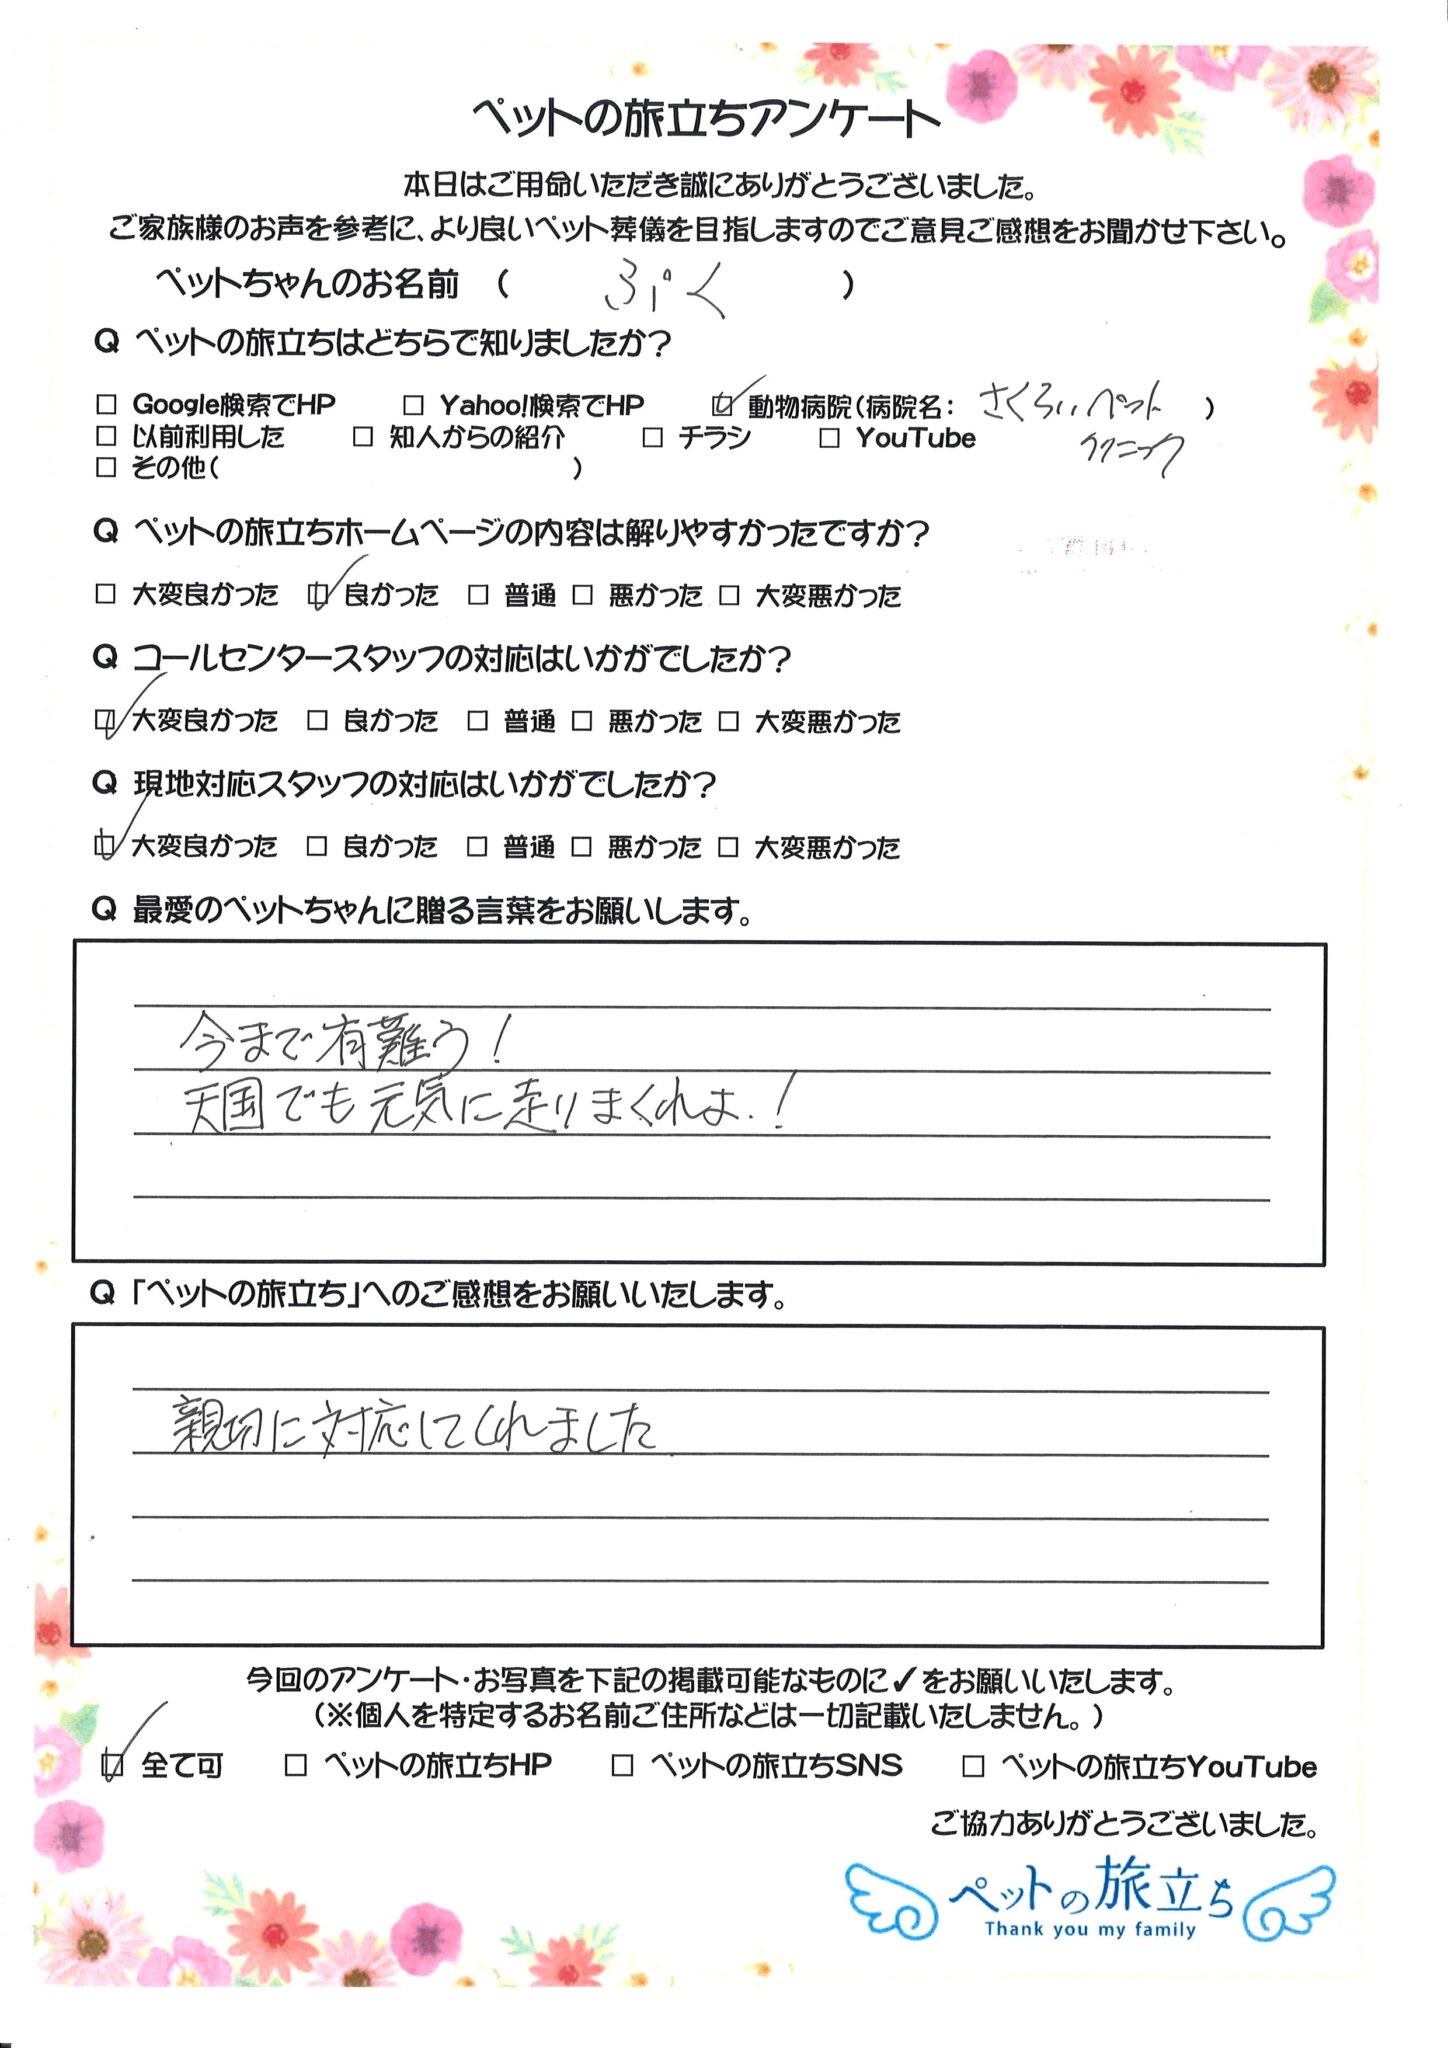 ペットの旅立ちアンケート
本日はご用命いただき誠にありがとうございました。
ご家族様のお声を参考に、より良いペット葬儀を目指しますのでご意見ご感想をお聞かせ下さい。
ペットちゃんのお名前 ( ふく )
Q ペットの旅立ちはどちらで知りましたか?
□ Google検索でHP □ Yahoo!検索でHP ☑ 動物病院(病院名: さくらいペット )
□ 以前利用した □ 知人からの紹介 □ チラシ □ YouTube クリニック
□ その他( )
Q ペットの旅立ちホームページの内容は解りやすかったですか?
□ 大変良かった ☑ 良かった □ 普通 □ 悪かった □ 大変悪かった
Q コールセンタースタッフの対応はいかがでしたか?
☑ 大変良かった □ 良かった □ 普通 □ 悪かった □ 大変悪かった
Q 現地対応スタッフの対応はいかがでしたか?
☑ 大変良かった □ 良かった □ 普通 □ 悪かった □ 大変悪かった
Q 最愛のペットちゃんに贈る言葉をお願いします。
今まで有難う!
天国でも元気に走りまくれよ.!
Q 「ペットの旅立ち」へのご感想をお願いいたします。
親切に対応してくれました
今回のアンケート・お写真を下記の掲載可能なものに✓をお願いいたします。
(※個人を特定するお名前ご住所などは一切記載いたしません。)
☑ 全て可 □ ペットの旅立ちHP □ ペットの旅立ちSNS □ ペットの旅立ちYouTube
ご協力ありがとうございました。
ペットの旅立ち
Thank you my family